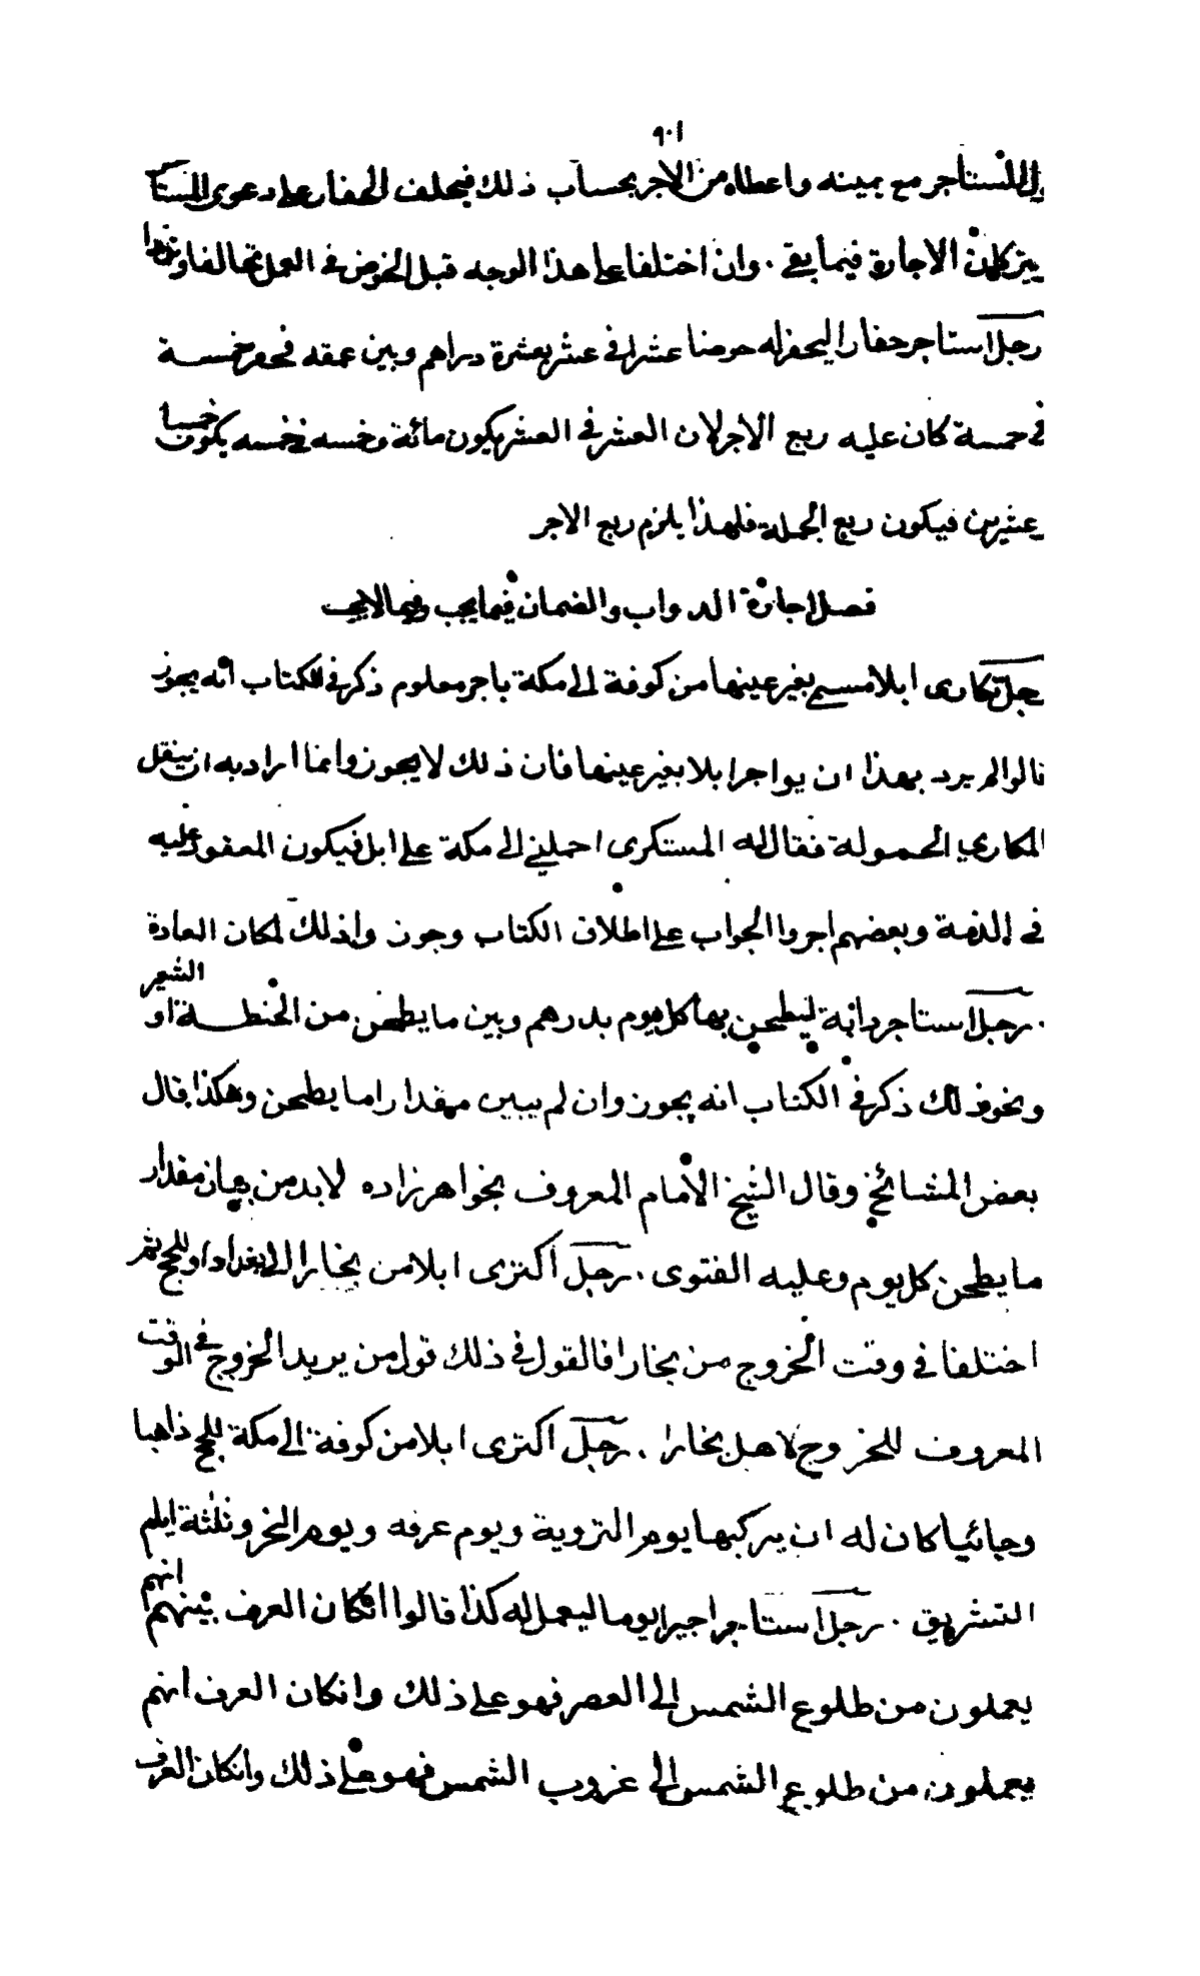 ٩٠١
للمستأجر مع يمينه واعطاه من الاجر بحساب ذلك فيحلف الحفار على دعوى المستا
يتركان الاجارة فيما بقي . وان اختلفا على هذا الوجه قبل الخوض في العمل تحالفا وترادا
رجل استاجر حفارا ليحفر له حوضا عشرا في عشر بعشرة دراهم وبين عمقه فحفر خمسة
في خمسة كان عليه ربع الاجر لان العشر في العشر يكون مائة وخمسه في خمسه يكون خمسا
عشرين فيكون ربع الجملة فلهذا يلزم ربع الاجر
فصل اجارة الدواب والضمان فيما يجب وفيما لا يجب
رجل تكارى ابلا مسمى بغير عينها من كوفة الى مكة باجر معلوم ذكر في الكتاب انه يجوز
قالوا لم يرد بهذا ان يواجر ابلا بغير عينها فان ذلك لا يجوز وانما اراد به ان يتقبل
المكاري الحمولة فقال له المستكرى احملني الى مكة على ابل فيكون المعقود عليه
في الذمة وبعضهم اجروا الجواب على اطلاق الكتاب وجوزوا ذلك لمكان العادة
. رجل استاجر دابة ليطحن بها كل يوم بدرهم وبين ما يطحن من الحنطة او الشعير
ونحو ذلك ذكر في الكتاب انه يجوز وان لم يبين مقدار ما يطحن وهكذا قال
بعض المشائخ وقال الشيخ الامام المعروف بخواهر زاده لا بد من بيان مقدار
ما يطحن كل يوم وعليه الفتوى . رجل اكترى ابلا من بخارا الى بغداد او للحج ثم
اختلفا في وقت الخروج من بخارا فالقول في ذلك قول من يريد الخروج في الوقت
المعروف للخروج لاهل بخارا . رجل اكترى ابلا من كوفة الى مكة للحج ذاهبا
وجائيا كان له ان يركبها يوم التروية ويوم عرفه ويوم النحر وثلثة ايام
التشريق . رجل استاجر اجيرا يوما ليعمل له كذا قالوا ان كان العرف بينهم انهم
يعملون من طلوع الشمس الى العصر فهو على ذلك وان كان العرف انهم
يعملون من طلوع الشمس الى غروب الشمس فهو على ذلك وان كان العرف